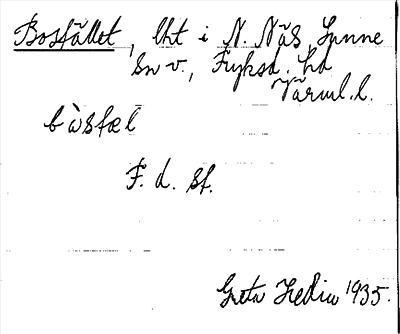 Bosfället, lht i N. Näs, Sunne
sn v., Fryksd. hd
Värml. l.
bòsfæl
F. d. sf.
Greta Hedin 1935.